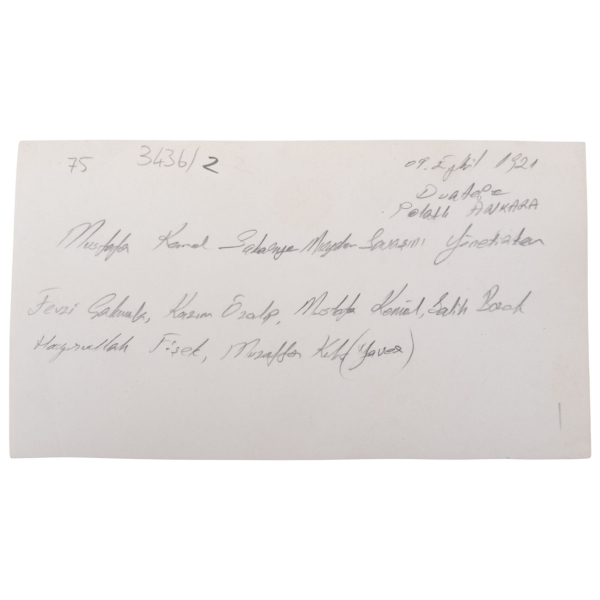 75 3436/2 09. Eylül 1921
Duatepe
Polatlı ANKARA
Mustafa Kemal Sakarya Meydan Savaşını Yönetirken
Fevzi Çakmak, Kazım Özalp, Mustafa Kemal, Salih Bozok
Hayrullah Fişek, Muzaffer Kılıç (Yaver)